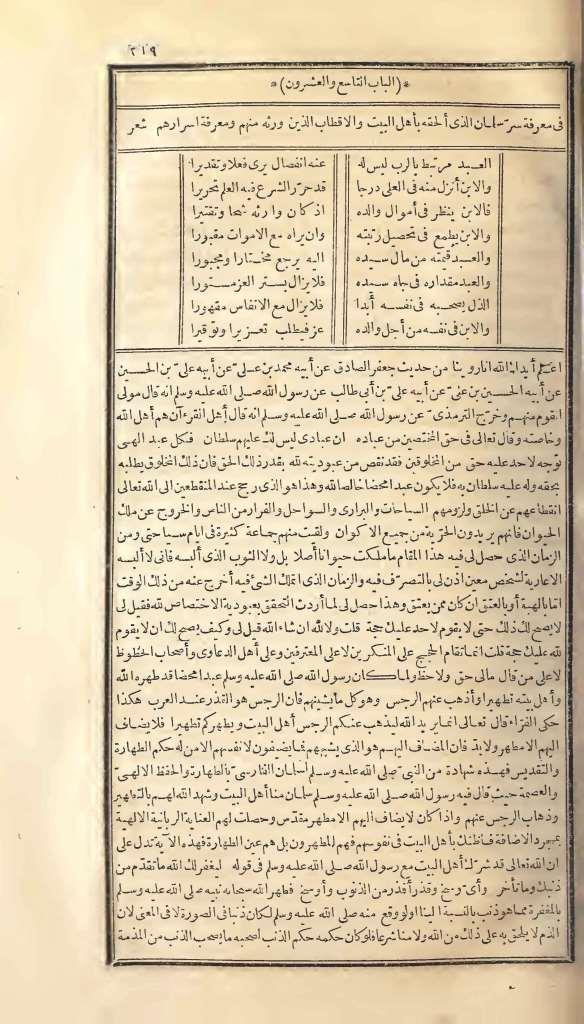 ٢١٩
* (الباب التاسع والعشرون) *
فى معرفة سر سلمان الذى ألحقه بأهل البيت والاقطاب الذين ورثه منهم ومعرفة اسرارهم شعر
العبد مرتبط بالرب ليس له عنه انفصال يرى فعلا وتقديرا
والابن أنزل منه فى العلى درجا قد حرر الشرع فيه العلم تحريرا
فالابن ينظر فى أموال والده اذ كان وارثه شحا وتقتيرا
والابن يطمع فى تحصيل رتبته وان يراه مع الاموات مقبورا
والعبد قيمته من مال سيده اليه يرجع مختارا ومجبورا
والعبد مقداره فى جاه سيده فلا يزال بستر العز مستورا
الذل يصحبه فى نفسه أبدا فلا يزال مع الانفاس مقهورا
والابن فى نفسه من أجل والده عز فيطلب تعزيرا وتوقيرا
اعلم أيدك الله انا روينا من حديث جعفر الصادق عن أبيه محمد بن على عن أبيه على بن الحسين
عن أبيه الحسين بن على عن أبيه على بن أبى طالب عن رسول الله صلى الله عليه وسلم انه قال مولى
القوم منهم وخرج الترمذى عن رسول الله صلى الله عليه وسلم انه قال أهل القرءآن هم أهل الله
وخاصته وقال تعالى فى حق المختصين من عباده ان عبادى ليس لك عليهم سلطان فكل عبد الهى
توجه لاحد عليه حق من المخلوقين فقد نقص من عبوديته لله بقدر ذلك الحق فان ذلك المخلوق يطلبه
بحقه وله عليه سلطان به فلا يكون عبدا محضا خالصا لله وهذا هو الذى رجح عند المنقطعين الى الله تعالى
انقطاعهم عن الخلق ولزومهم السياحات والبرارى والسواحل والفرار من الناس والخروج عن ملك
الحيوان فانهم يريدون الحرية من جميع الاكوان ولقيت منهم جماعة كثيرة فى ايام سياحتى ومن
الزمان الذى حصل لى فيه هذا المقام ما ملكت حيوانا أصلا بل ولا الثوب الذى ألبسه فانى لا ألبسه
الا عارية لشخص معين أذن لى بالتصرف فيه والزمان الذى اتملك الشىء فيه أخرج عنه من ذلك الوقت
اما بالهبة أو بالعتق ان كان ممن يعتق وهذا حصل لى لما أردت التحقق بعبودية الاختصاص لله فقيل لى
لا يصح لك ذلك حتى لا يقوم لاحد عليك حجة قلت ولا لله ان شاء الله قيل لى وكيف يصح لك ان لا يقوم
لله عليك حجة قلت انما تقام الحجج على المنكرين لا على المعترفين وعلى أهل الدعاوى وأصحاب الحظوظ
لا على من قال مالى حق ولا حظ ولما كان رسول الله صلى الله عليه وسلم عبدا محضا قد طهره الله
وأهل بيته تطهيرا وأذهب عنهم الرجس وهو كل ما يشينهم فان الرجس هو القذر عند العرب هكذا
حكى الفراء قال تعالى انما يريد الله ليذهب عنكم الرجس أهل البيت ويطهركم تطهيرا فلا يضاف
اليهم الا مطهر ولا بد فان المضاف اليهم هو الذى يشبههم فما يضيفون لانفسهم الا من له حكم الطهارة
والتقديس فهذه شهادة من النبى صلى الله عليه وسلم لسلمان الفارسى بالطهارة والحفظ الالهى
والعصمة حيث قال فيه رسول الله صلى الله عليه وسلم سلمان منا أهل البيت وشهد الله لهم بالتطهير
وذهاب الرجس عنهم واذا كان لا يضاف اليهم الا مطهر مقدس وحصلت لهم العناية الربانية الالهية
بمجرد الاضافة فما ظنك بأهل البيت فى نفوسهم فهم المطهرون بل هم عين الطهارة فهذه الآية تدل على
ان الله تعالى قد شرك أهل البيت مع رسول الله صلى الله عليه وسلم فى قوله ليغفر لك الله ما تقدم من
ذنبك وما تأخر وأى وسخ وقذر أقذر من الذنوب وأوسخ فطهر الله سبحانه نبيه صلى الله عليه وسلم
بالمغفرة مما هو ذنب بالنسبة الينا ولو وقع منه صلى الله عليه وسلم لكان ذنبا فى الصورة لا فى المعنى لان
الذم لا يلحق به على ذلك من الله ولا منا شرعا فلو كان حكمه حكم الذنب لصحبه ما يصحب الذنب من المذمة